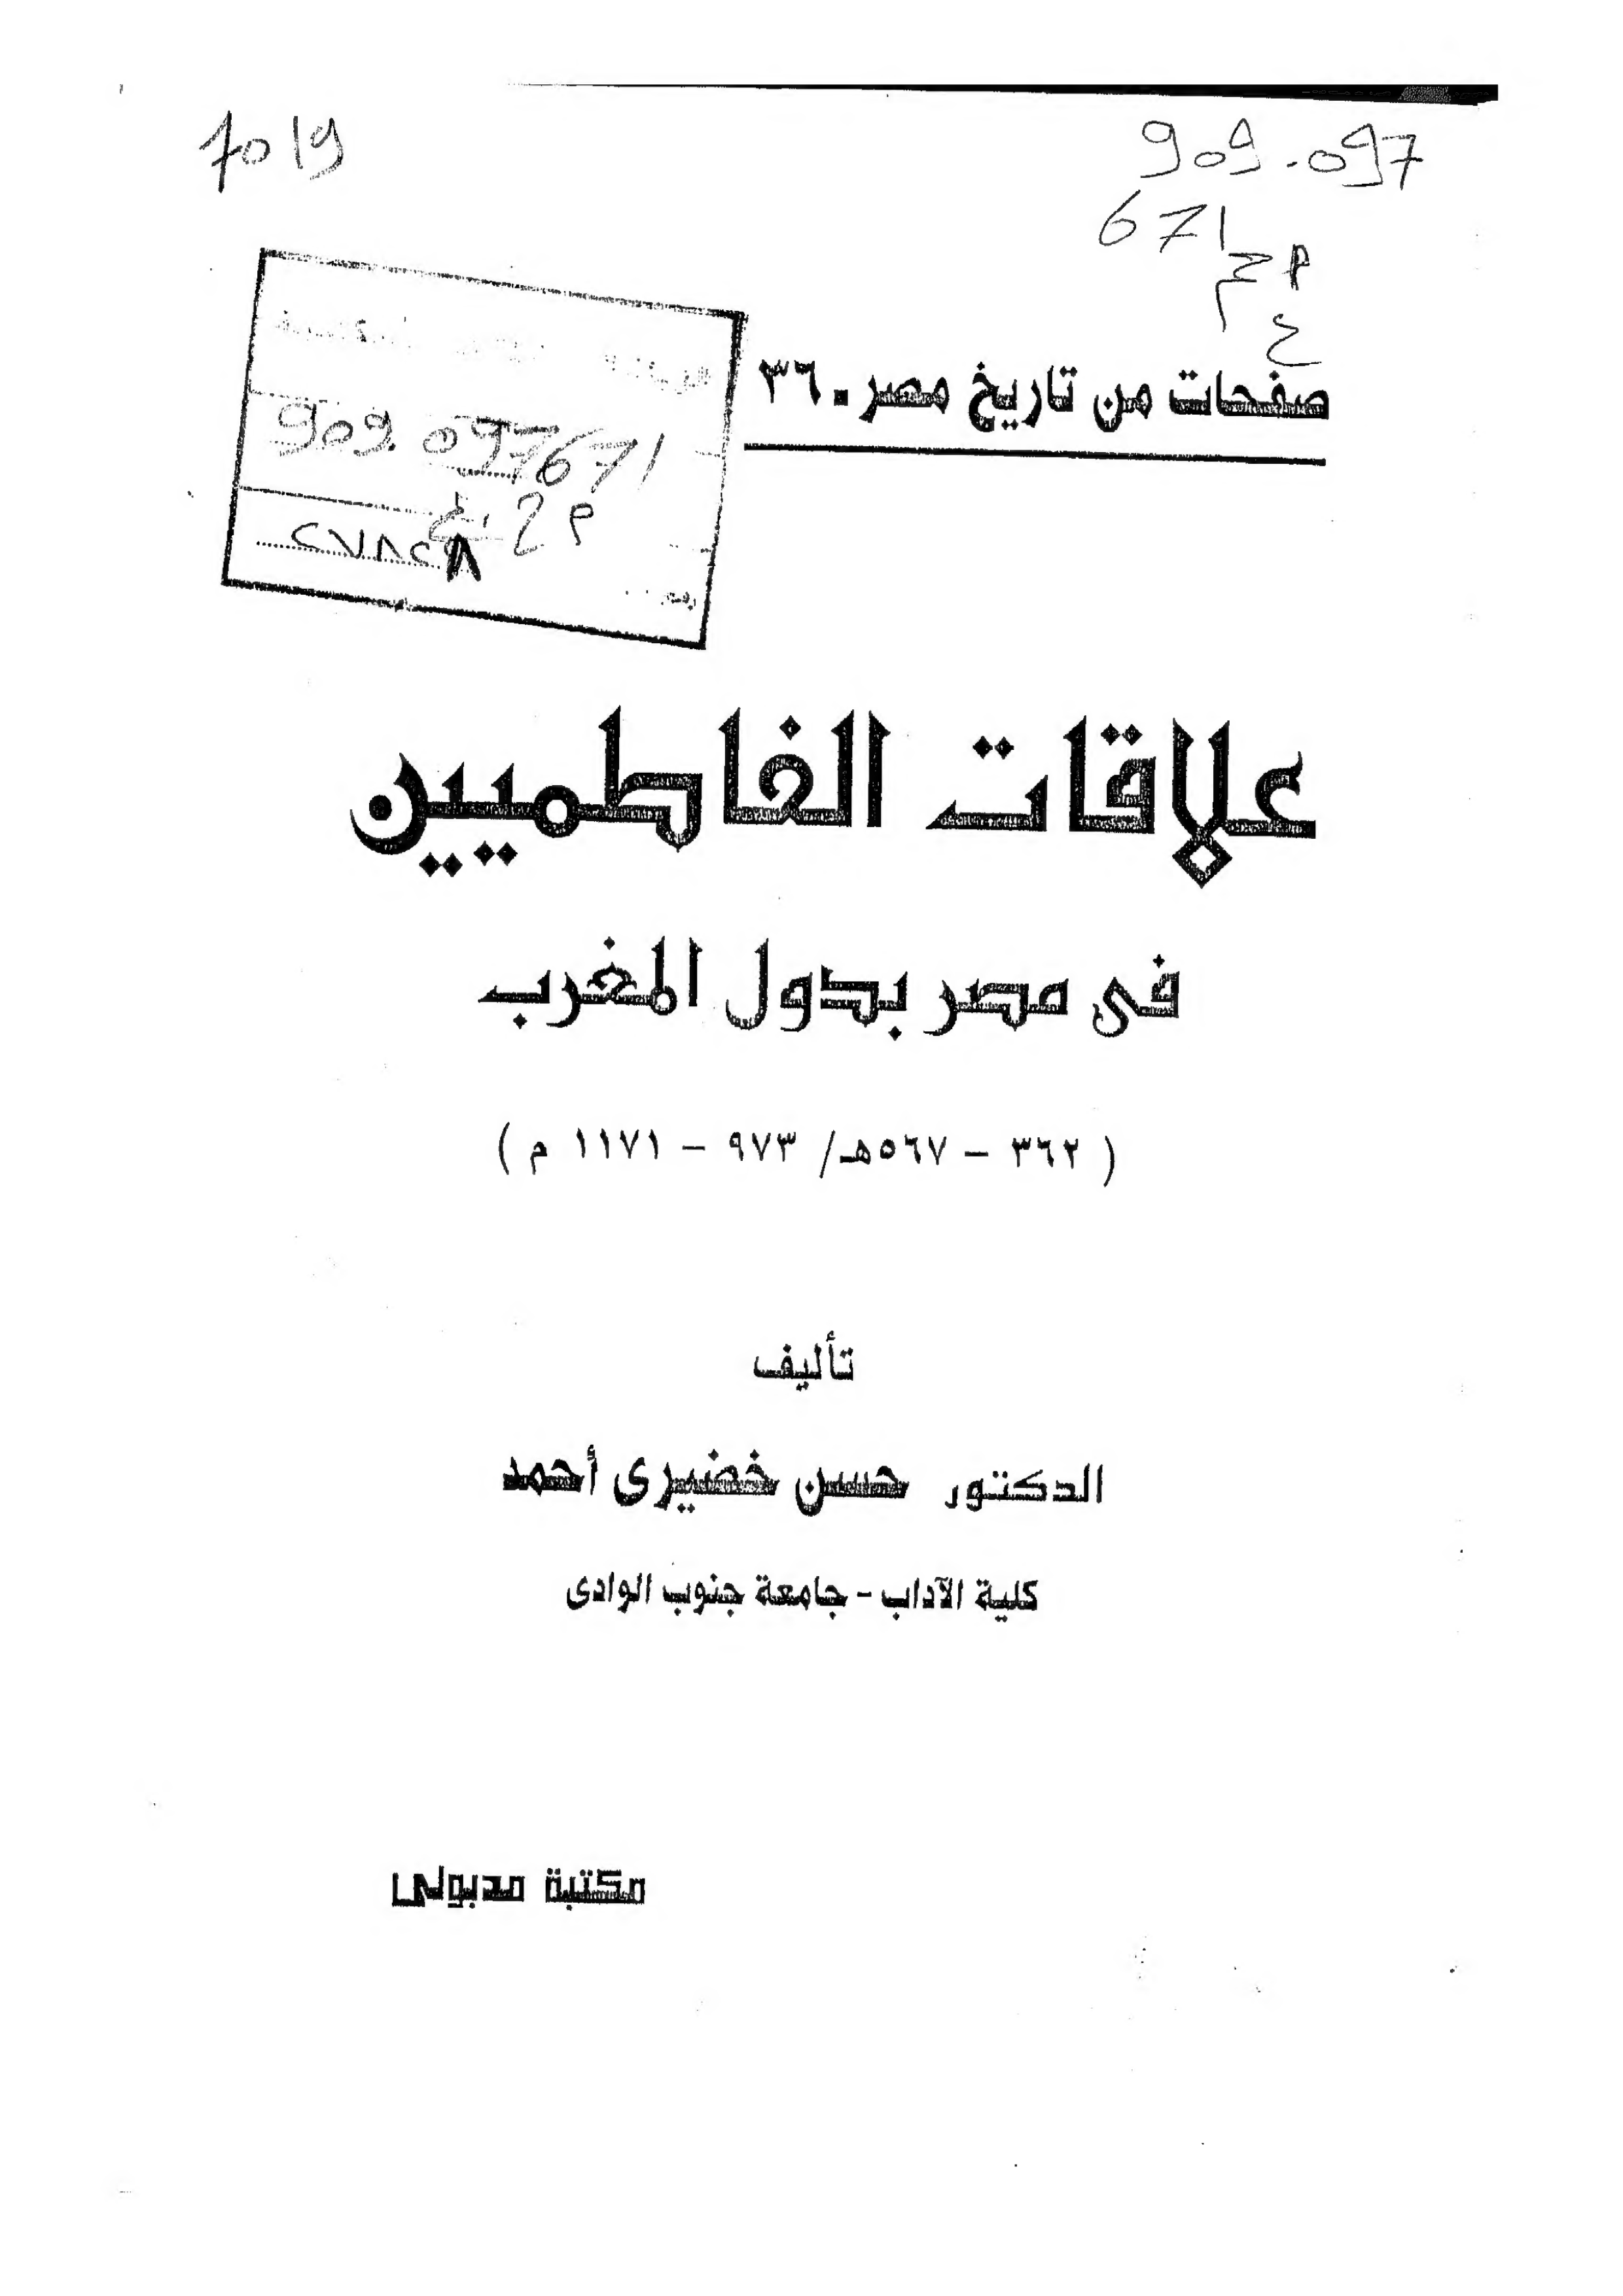 7019
909.097
671
م ح
ع
صفحات من تاريخ مصر . ٣٦
909.097671
٢٧٨٢٨
علاقات الفاطميين
فى مصر بدول المغرب
( ٣٦٢ – ٥٦٧هـ/ ٩٧٣ – ١١٧١ م )
تأليف
الدكتور حسن خضيرى أحمد
كلية الآداب - جامعة جنوب الوادى
مكتبة مدبولى